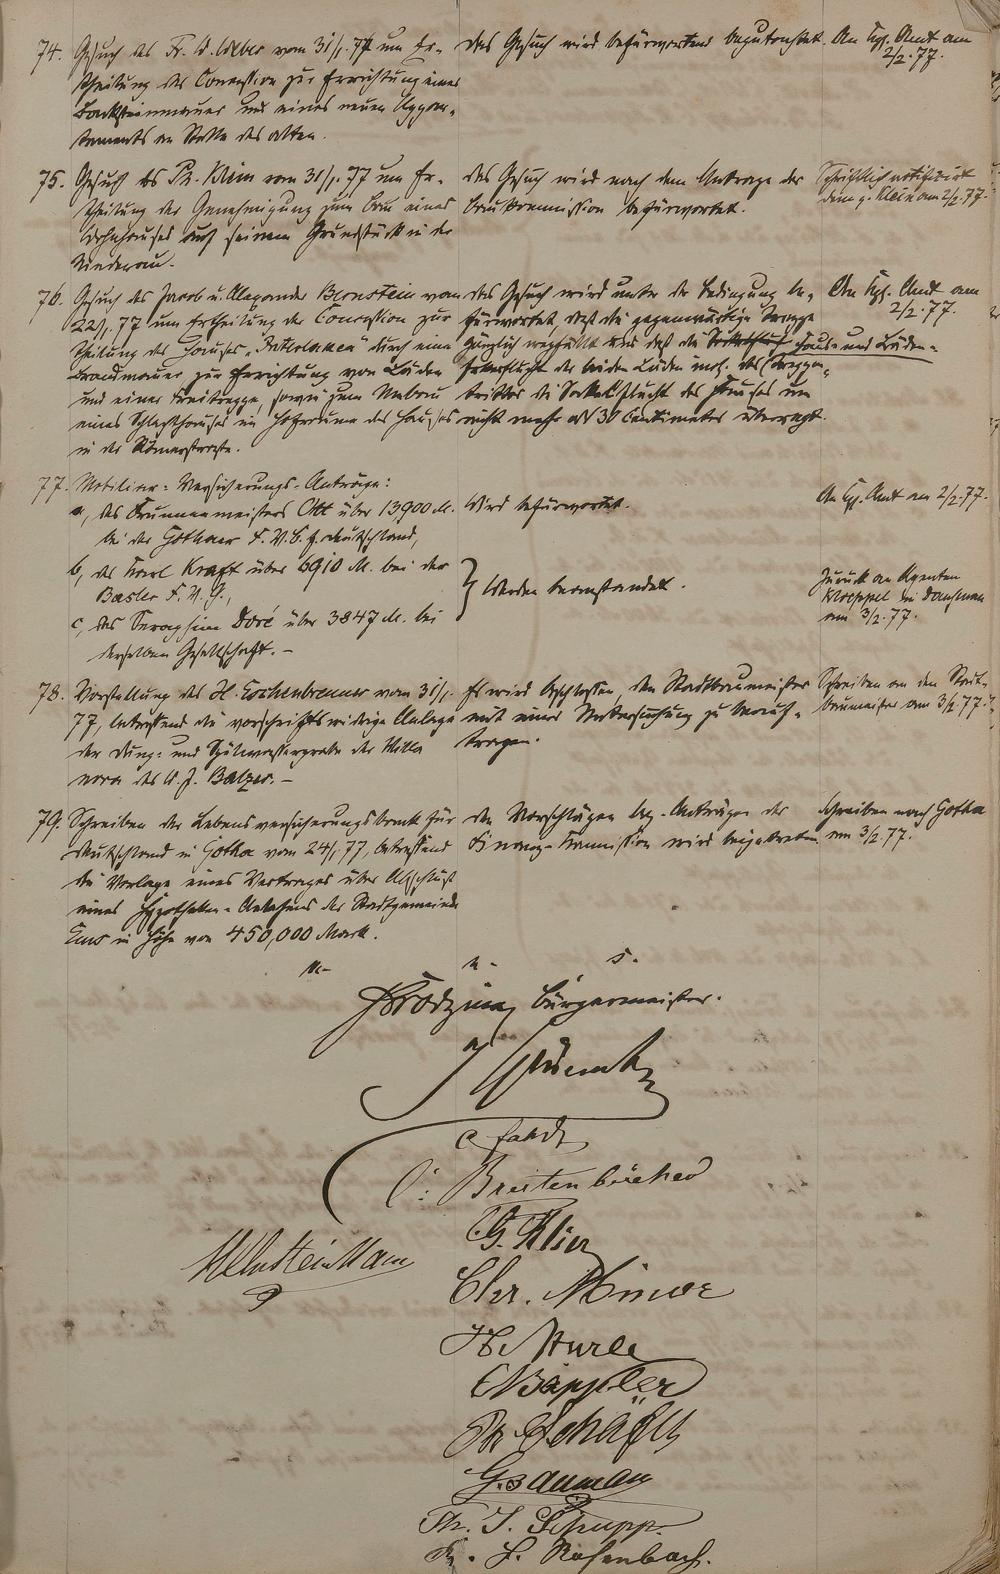 74. Gesuch des Fr. W. Weber vom 31/1. 77 um Er-
theilung der Concession zur Errichtung einer
Backsteinmauer und eines neuen Appar-
taments an Stelle des alten.
Das Gesuch wird befürwortend begutachtet.
An Kgl. Amt am
2/2. 77.
75. Gesuch des Ph. Klein vom 31/1. 77 um Er-
theilung der Genehmigung zum Bau eines
Wohnhauses auf seinem Grundstück in der
Das Gesuch wird nach dem Antrage der
Baukommission befürwortet.
Schriftlich notifizirt
dem p. Klein am 2/2. 77.
76. Gesuch des Jacob u. Alexander Bernstein vom
22/1. 77 um Ertheilung der Concession zur
Theilung des Hauses „Interlaken" durch eine
Brandmauer zur Errichtung von Läden
und einer Freitreppe, sowie zum Umbau
eines Schlachthauses im Hofraume des Hauses
in der Römerstraße.
Das Gesuch wird unter der Bedingung be-
fürwortet, daß die gegenwärtige Treppe
gänzlich wegfällt und daß die Haus- und Läden-
der beiden Läden incl. des Treppen-
trittes die Sockelflucht des Hauses um
nicht mehr als 30 Centimeter überragt.
An Kgl. Amt am
2/2. 77.
77. Mobiliar-Versicherungs-Anträge:
a, des Brunnenmeisters Ott über 13900 M.
bei der Gothaer F. V. B. f. Deutschland,
Wird befürwortet.
An Kgl. Amt am 2/2. 77.
b, des Karl Kraft über 6910 M. bei der
Basler F. V. G.,
c, des Seraphim Doré über 3847 M. bei
derselben Gesellschaft. –
} Werden beanstandet.
Zurück an Agenten
am 3/2. 77.
78. Vorstellung des H. Eschenbrenner vom 31/1.
77, betreffend die vorschriftswidrige Anlage
der Dung- und Spülwassergrube der Villa
nova des A. J. Balzer. –
Es wird beschlossen, den Stadtbaumeister
mit einer Untersuchung zu beauf-
tragen.
Schreiben an den Stadt-
baumeister am 3/2. 77.
79. Schreiben der Lebensversicherungsbank für
Deutschland in Gotha vom 24/1. 77, betreffend
die Vorlage eines Vertrages über Abschluß
eines Hypotheken-Anlehens der Stadtgemeinde
Ems in Höhe von 450,000 Mark.
Den Vorschlägen bez. Anträgen der
Finanz-Kommission wird beigetreten.
Schreiben nach Gotha
am 3/2. 77.
u. s.
Bürgermeister.
Breitenbücher
Chr. Minor
Bäppler
Ph. Schäfer
G. Bauman
Ph. J. Schupp.
Rosenbach.